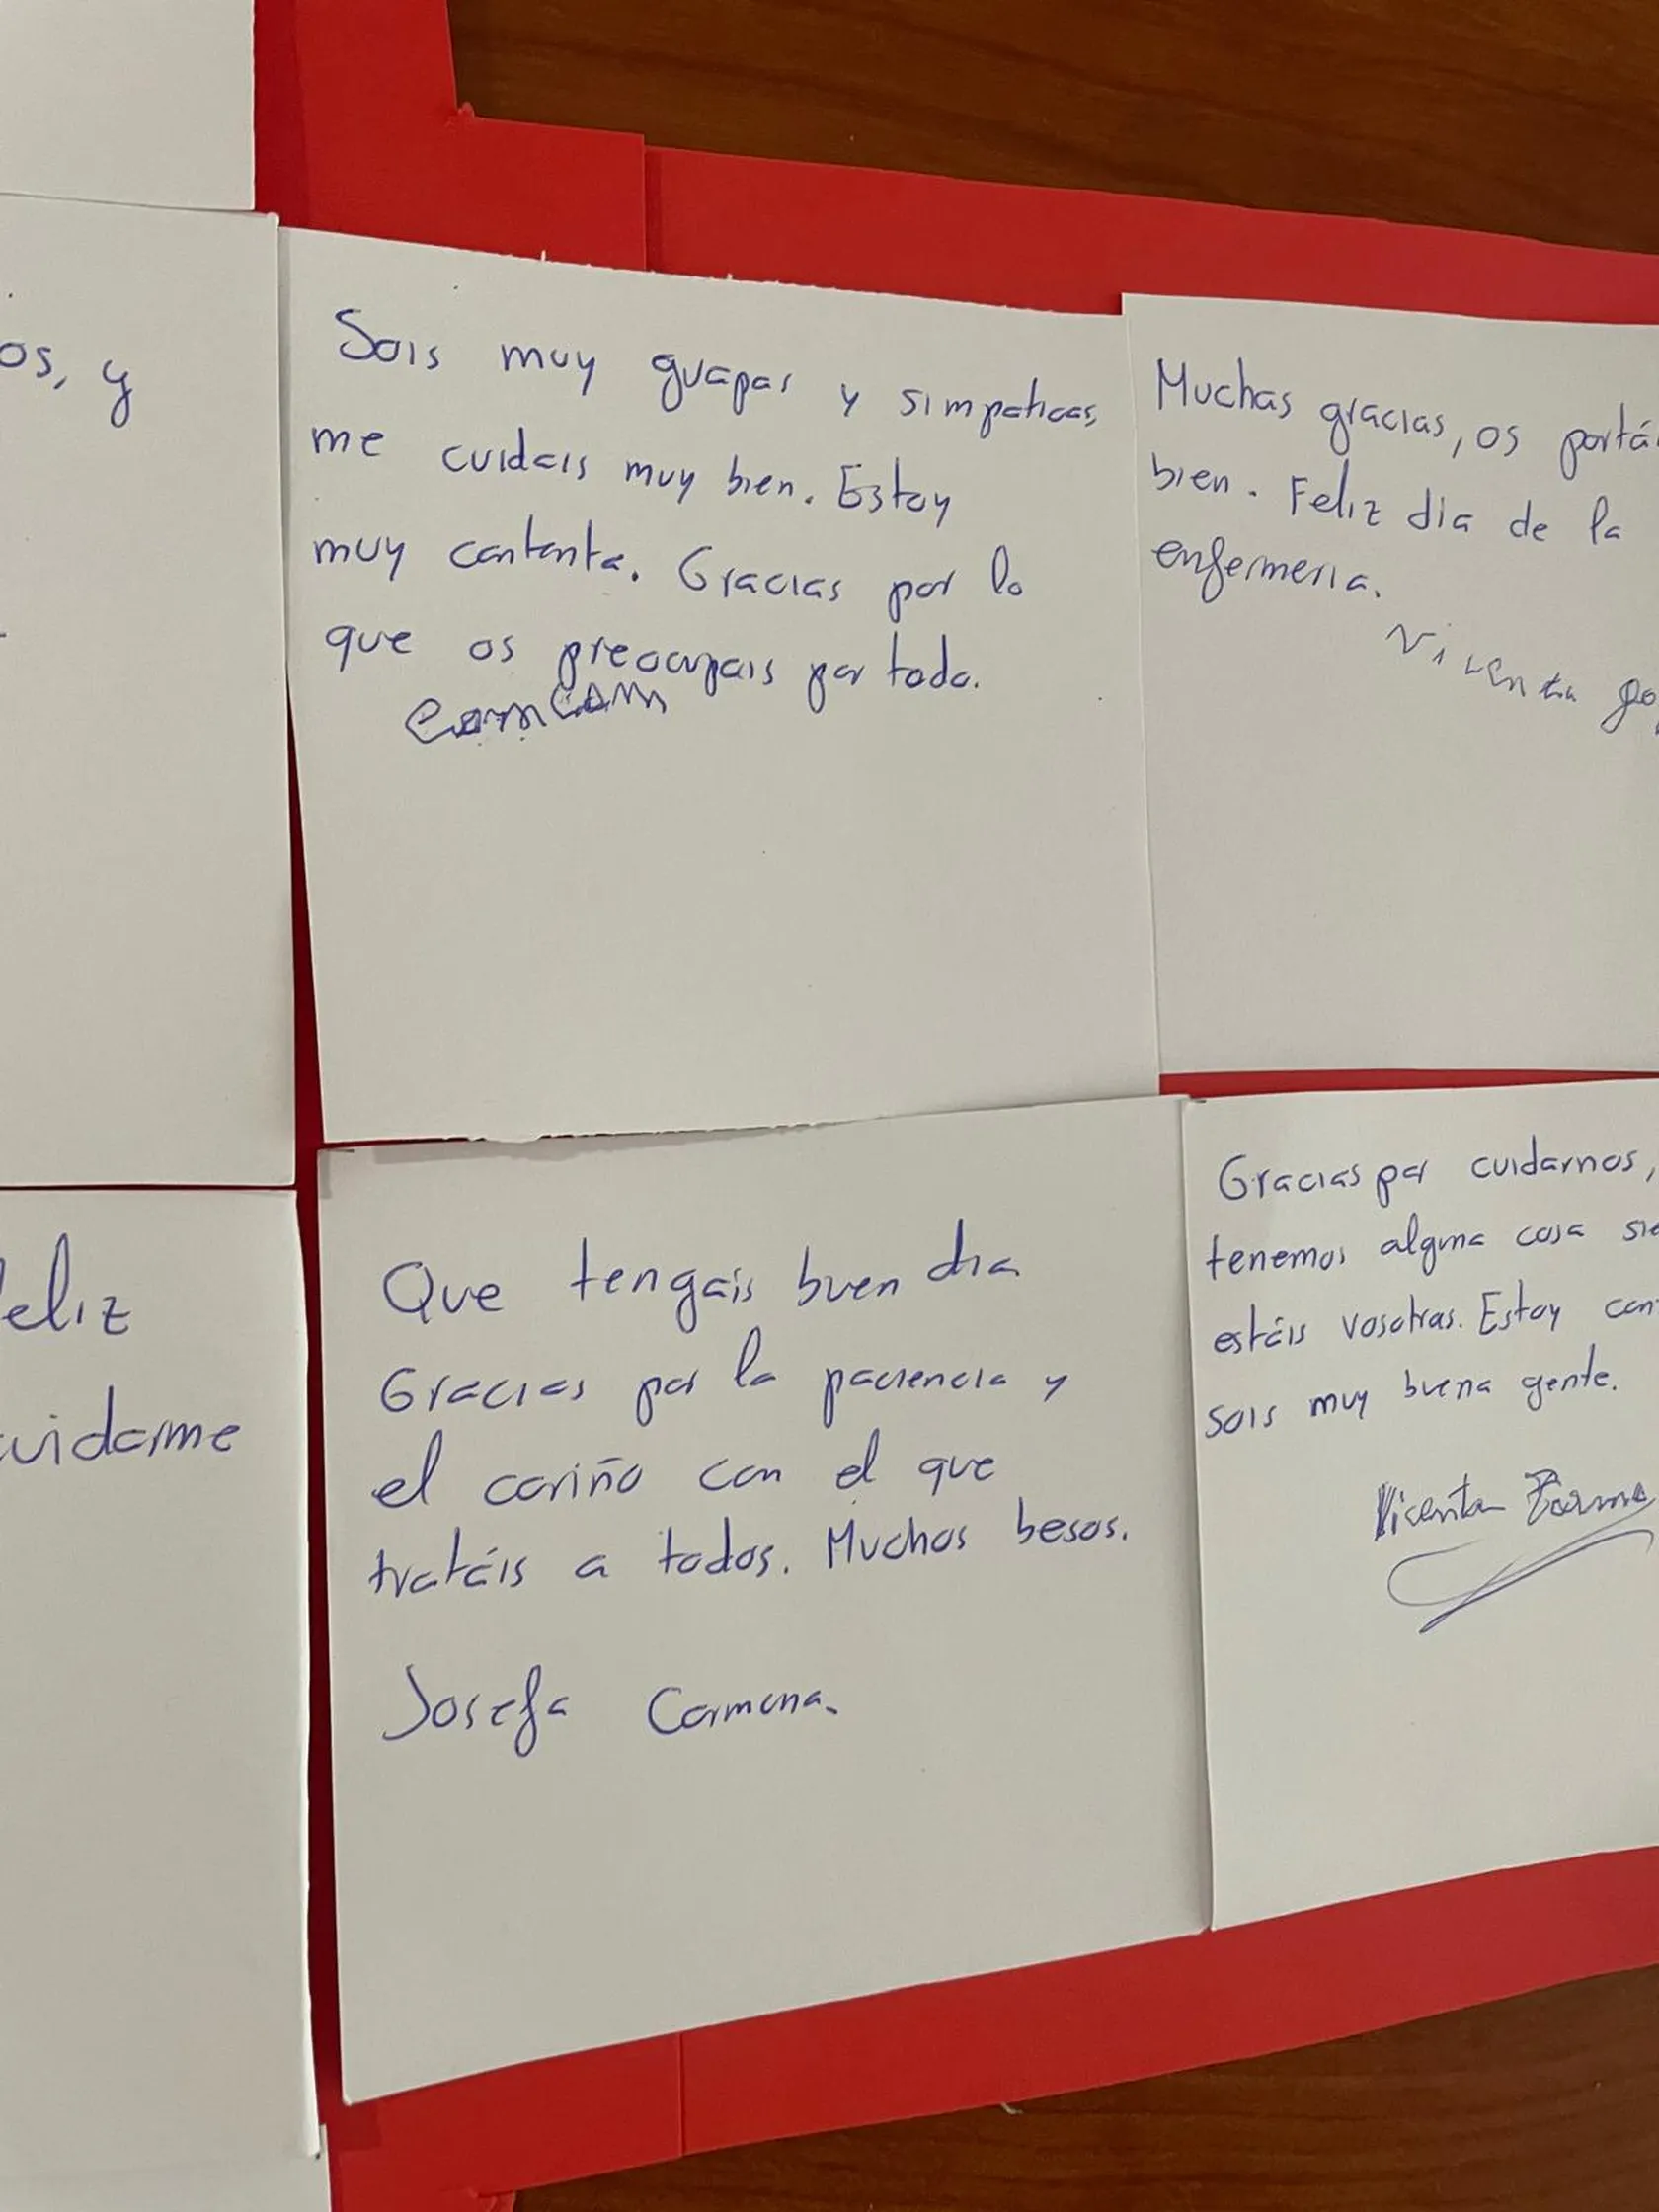 os, y
Sois muy guapas y simpaticas,
me cuidais muy bien. Estoy
muy contenta. Gracias por lo
que os preocupais por todo.
Muchas gracias, os portá
bien. Feliz dia de la
enfermeria.
Vicenta
eliz
uidarme
Que tengais buen dia
Gracias por la paciencia y
el cariño con el que
tratáis a todos. Muchos besos.
Josefa Carmona.
Gracias por cuidarnos,
tenemos alguna cosa sie
estáis vosotras. Estoy con
sois muy buena gente.
Vicenta